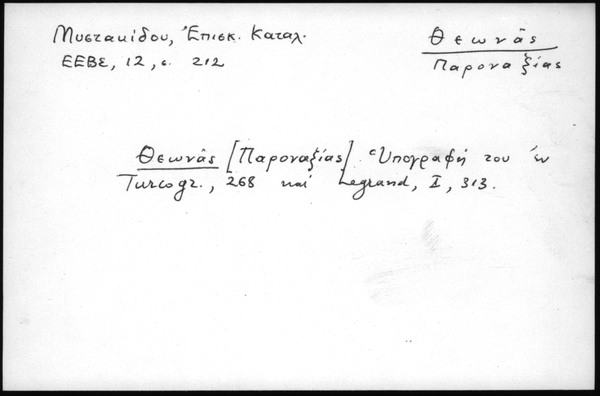 Μυστακίδου, Ἐπισκ. Καταλ.
ΕΕΒΣ, 12, σ. 212
Θεωνᾶς
Παροναξίας
Θεωνᾶς [Παροναξίας]. Ὑπογραφή του ἐν
Turcogr., 268 καί Legrand, II, 313.